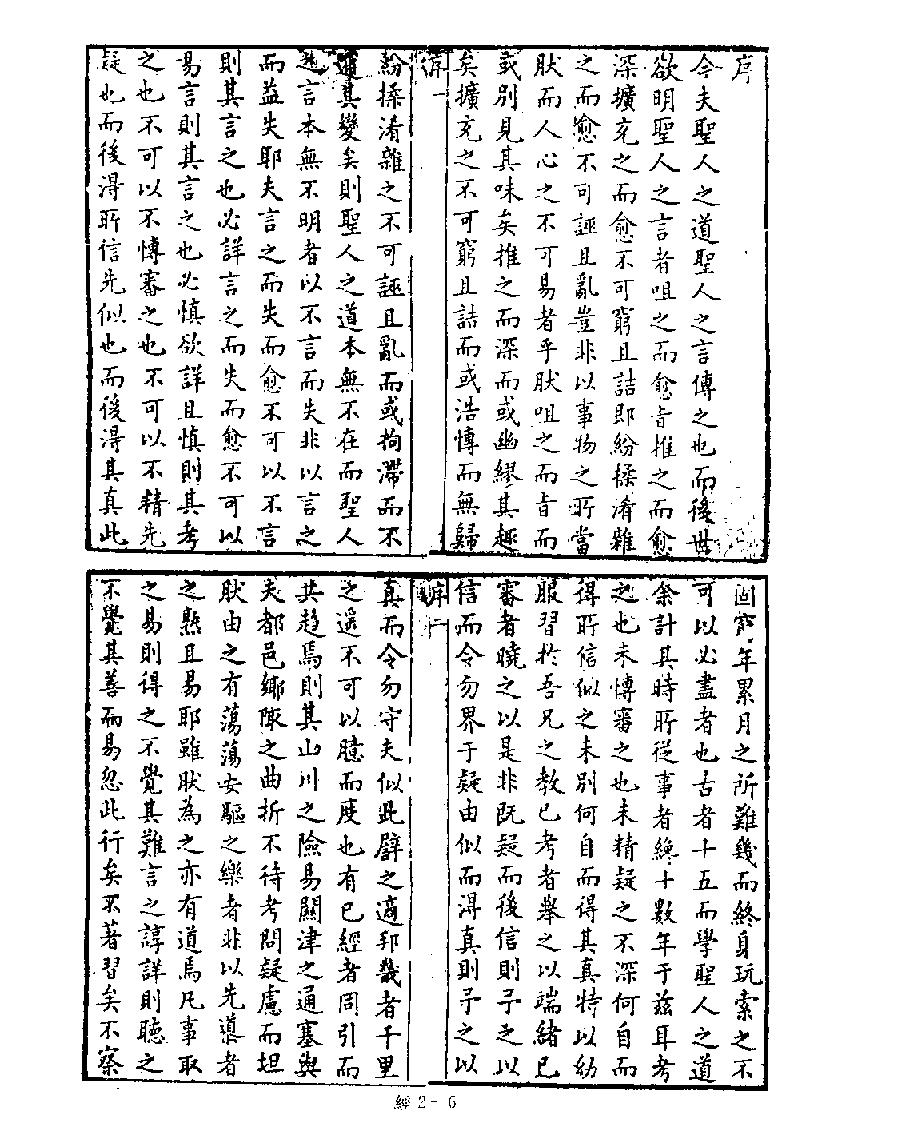 序
今夫聖人之道聖人之言傳之也而後世
欲明聖人之言者咀之而愈旨推之而愈
深擴充之而愈不可窮且詰即紛揉淆雜
之而愈不可誣且亂豈非以事物之所當
肰而人心之不可易者乎肰咀之而旨而
或別見其味矣推之而深而或幽繆其趣
矣擴充之不可窮且詰而或浩慱而無歸
序 一
紛揉淆雜之不可誣且亂而或拘滯而不
通其變矣則聖人之道本無不在而聖人
之言本無不明者以不言而失非以言之
而益失耶夫言之而失而愈不可以不言
則其言之也必詳言之而失而愈不可以
易言則其言之也必慎欲詳且慎則其考
之也不可以不慱審之也不可以不精先
疑也而後得所信先似也而後得其真此
固窮年累月之所難幾而終身玩索之不
可以必盡者也古者十五而學聖人之道
余計其時所從事者纔十數年于茲耳考
之也未慱審之也未精疑之不深何自而
得所信似之未別何自而得其真特以幼
服習於吾兄之教已考者舉之以端緒已
審者曉之以是非既疑而後信則予之以
信而令勿界于疑由似而得真則予之以
序 二
真而令勿守夫似此辟之適邦畿者千里
之遥不可以臆而度也有已經者同引而
共趨焉則其山川之險易關津之通塞與
夫都邑鄉陬之曲折不待考問疑慮而坦
肰由之有蕩蕩安驅之樂者非以先導者
之熟且易耶雖肰為之亦有道焉凡事取
之易則得之不覺其難言之諄詳則聽之
不覺其善而易忽此行矣不著習矣不察
經2-6